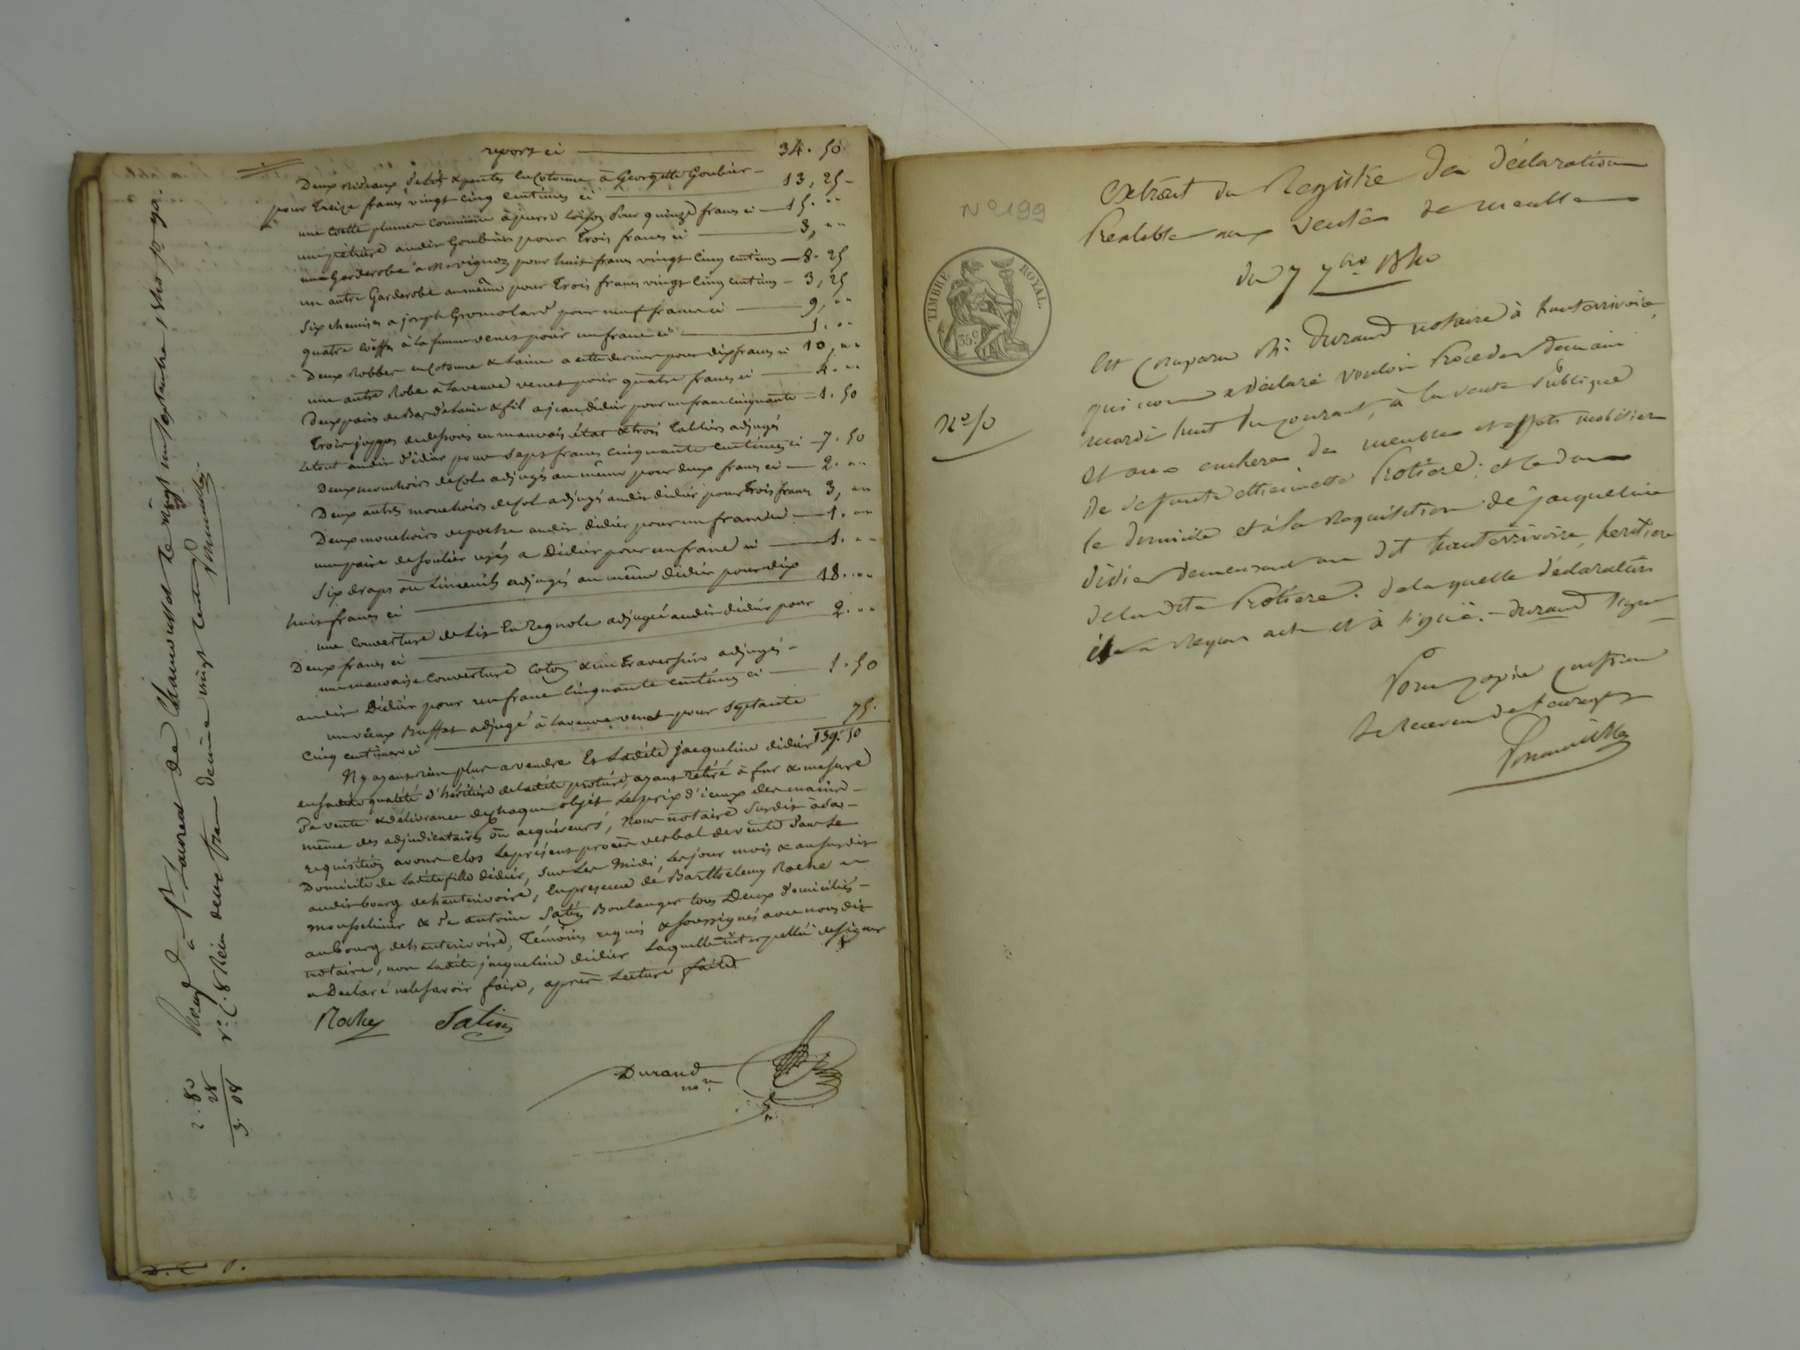 report ci 34. 50
Deux rideaux de lit & pentes en cotonne à Georgette Goubier
pour treize francs vingt cinq centimes ci 13, 25
une coette plumes commune à pierre pour quinze francs ci 15. "
une pétrière audit Goubier pour trois francs ci 3, "
une Garderobe à Mr vignon pour huit francs vingt cinq centimes 8. 25
une autre Garderobe au même pour trois francs vingt cinq centimes 3, 25
Six chemises a joseph Gromolard pour neuf francs ci 9, "
quatre coëffes à la femme venet pour un franc ci 1. "
Deux Robbes en cotonne & laine a cette dernière pour dix francs ci 10, "
une autre Robe à la veuve venet pour quatre francs ci 4. "
Deux pairs de Bas de laine & fil a jean didier pour un franc cinquante 1. 50
Trois juppes de dessous en mauvais état & trois Tabliers adjugés
le tout audit didier pour sept francs cinquante centimes ci 7. 50
Deux mouchoirs de Col adjugés au même pour deux francs ci 2. "
Deux autres mouchoirs de Col adjugés audit didier pour trois francs 3, "
Deux mouchoirs de poche audit didier pour un franc ci 1. "
une paire de soulier usés a Didier pour un franc ci 1. "
Six draps ou Linceuils adjugés au même Didier pour dix
huit francs ci 18. "
une couverture de Lit adjugée audit didier pour
Deux francs ci 2. "
une mauvaise couverture coton & un traversin adjugés
audit Didier pour un franc cinquante centimes ci 1. 50
un vieux Buffet adjugé à la veuve venet pour septante
cinq centimes ci 75.
139. 50
N'y ayant rien plus a vendre Et Ladite jacqueline didier
en sadite qualité d'héritière de ladite protière, ayant retiré à fur & mesure
de vente & délivrance de chaque objet le prix d'iceux des mains
même des adjudicataires ou acquéreurs, Nous notaire susdit à sa
requisition avons clos le présent procès verbal de vente dans le
Domicile de ladite fille didier, sur les Midi, les jour mois & an susdits
audit bourg de hauterivoire, En présence de Barthelemy Roche
mousselinier & de antoine Satin Boulanger tous Deux domiciliés
au bourg de hauterivoire, Témoins requis & soussignés avec nous dit
notaire, non Ladite jacqueline didier laquelle interpellée de signer
a Declaré ne le savoir faire, après Lecture faite
Roche Satin
Durand
nore
Enregé à St Laurent de Chamousset le vingt un septembre 1840
ro C. 8 Reçu deux francs
2. 80
28
3. 08
No 199
TIMBRE ROYAL.
35 c
No 10
Extrait du Registre des déclarations
Préalable aux ventes de meubles
du 7 7bre 1840
Est comparu Me Durand notaire à hauterivoire,
qui nous a déclaré vouloir Procéder demain
mardi huit du courant, à la vente Publique
et aux enchères des meubles et effets mobiliers
de defunte Protière; et ce dans
le domicile et à la Requisition de jacqueline
didier demeurant au dit hauterivoire, héritière
de la dite Protière. de laquelle déclaration
il a Requis acte et à signé. Durand signé
Pour copie conforme
Le Receveur de l'enregt